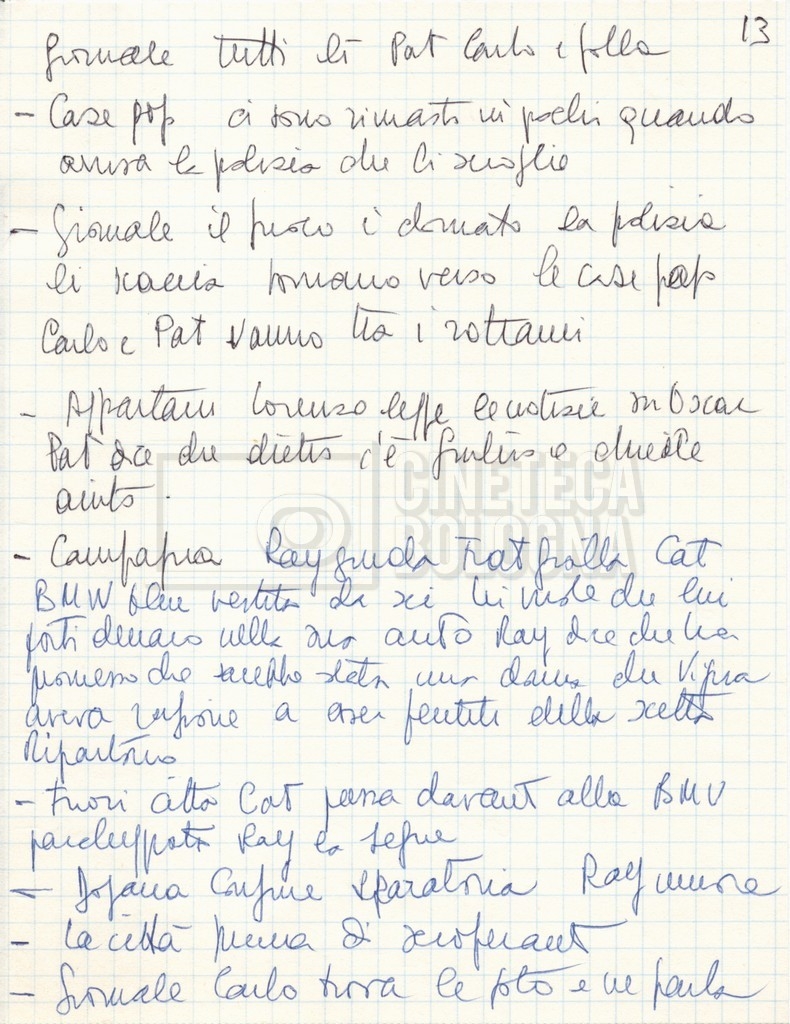 13
Giornale tutti lì Pat Carlo e folla
- Case pop ci sono rimasti in pochi quando
arriva la polizia che li scioglie
- Giornale il fuoco è domato la polizia
li scaccia tornano verso le case pop
Carlo e Pat vanno tra i rottami
- Appartam Lorenzo legge le notizie su Oscar
Pat dice che dietro c'è Giulio e chiede
aiuto.
CINETECA
BOLOGNA
- Campagna Ray guida Fiat gialla Cat
BMW blu vestita da sci lui vuole che lui
porti denaro nella sua auto Ray dice che ha
promesso che sarebbe stata una dama che Vipra
aveva ragione a esser pentita della scelta
Ripartono
- Fuori città Cat passa davant alla BMV
parcheggiata Ray la segue
- Dogana Confine sparatoria Ray muore
- La città piena di scioperanti
- Giornale Carlo trova le foto e ne parla